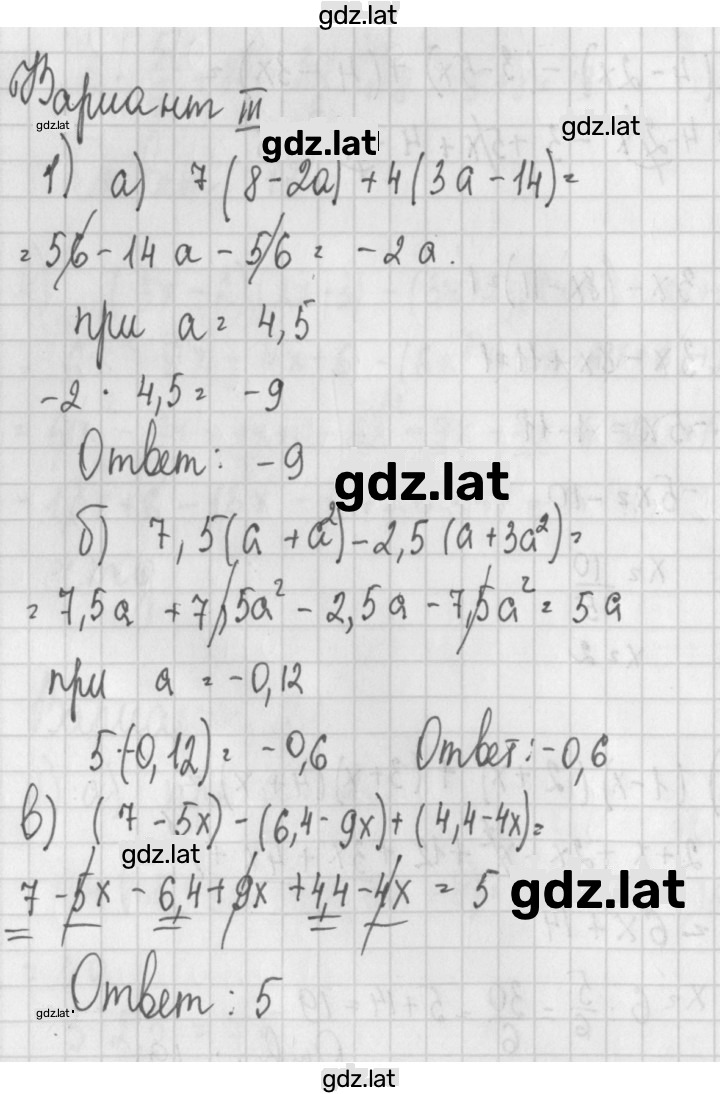 gdz.lat
Вариант III
gdz.lat
gdz.lat
gdz.lat
1) а) 7 (8 - 2a) + 4 (3a - 14) =
= 56 - 14 a - 56 = - 2 a.
при a = 4,5
-2 · 4,5 = -9
Ответ: -9
gdz.lat
б) 7,5 (a + a²) - 2,5 (a + 3a²) =
= 7,5a + 7,5a² - 2,5a - 7,5a² = 5a
при a = -0,12
5·(-0,12) = -0,6 Ответ: -0,6
в) (7 - 5x) - (6,4 - 9x) + (4,4 - 4x) =
gdz.lat
7 - 5x - 6,4 + 9x + 4,4 - 4x = 5
gdz.lat
Ответ: 5
gdz.lat
gdz.lat